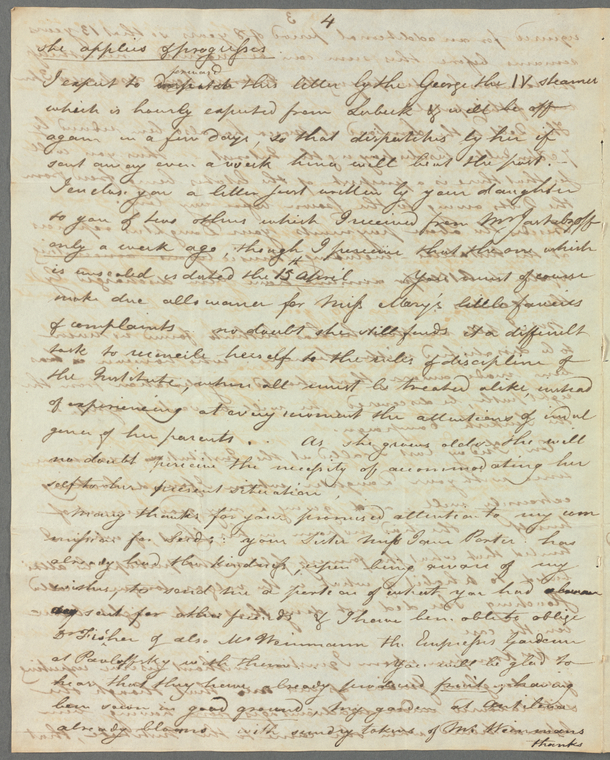 4
she applies & progresses
forward
I expect to despatch this letter by the George the IV steamer
which is hourly expected from Lubeck & will be off
again in a few days, so that dispatches by her if
sent away even a week hence will beat the post. —
I enclose you a letter just written by your daughter
to you & two others which I received from Mr
only a week ago, though I perceive that the one which
is unsealed is dated the 15th April You must of course
make due allowance for Miss Mary's little fancies
& complaints no doubt she still finds it a difficult
task to reconcile herself to the rules & discipline of
the Institute, where all must be treated alike instead
of experiencing at every moment the attentions & indul
gence of her parents . . As she grows older she will
no doubt perceive the necessity of accommodating her
self to her present situation,
Many thanks for your promised attention to my com
mission for seeds: your Sister Miss Jane Porter has
already had the kindness, upon being aware of my
wishes, to send me a portion of what you had
sent for other friends & I have been able to oblige
Dr Fisher & also Mr Weinmann the Empress' Gardener
at Pavlofsky with them You will be glad to
hear that they have already produced fruit, having
been sown in good ground My garden at
already blooms with sundry tokens of Mr Weinmanns
thanks